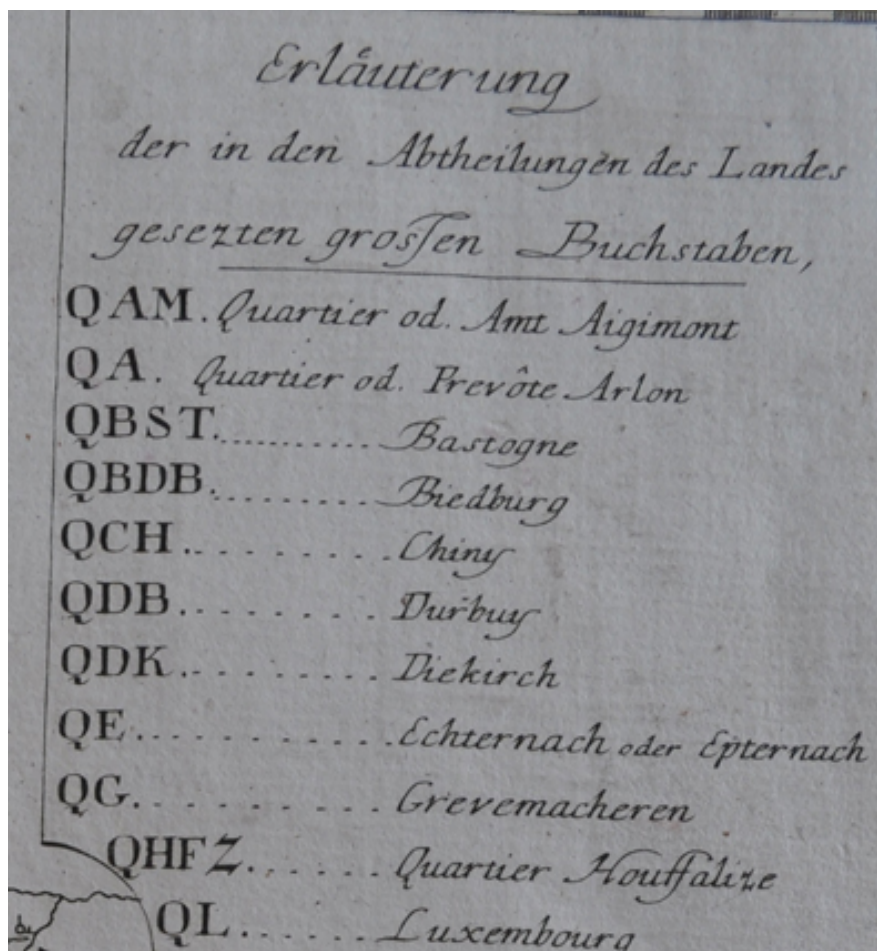 Erläuterung
der in den Abtheilungen des Landes
gesezten grossen Buchstaben,
QAM. Quartier od. Amt Aigimont
QA. Quartier od. Prevôte Arlon
QBST............ Bastogne
QBDB.......... Biedburg
QCH.......... Chiny
QDB......... Durbuy
QDK.......... Diekirch
QE............. Echternach oder Epternach
QG........... Grevemacheren
QHFZ....... Quartier Houffalize
QL........ Luxembourg